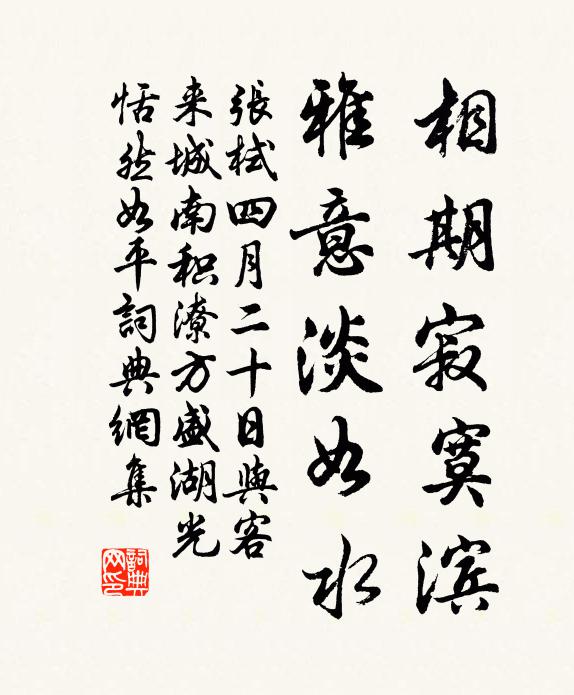 相期寂寞滨
雅意淡如水
張栻四月二十日與客
来城南积潦方盛湖光
恬然如平詞典網集
詞典网印